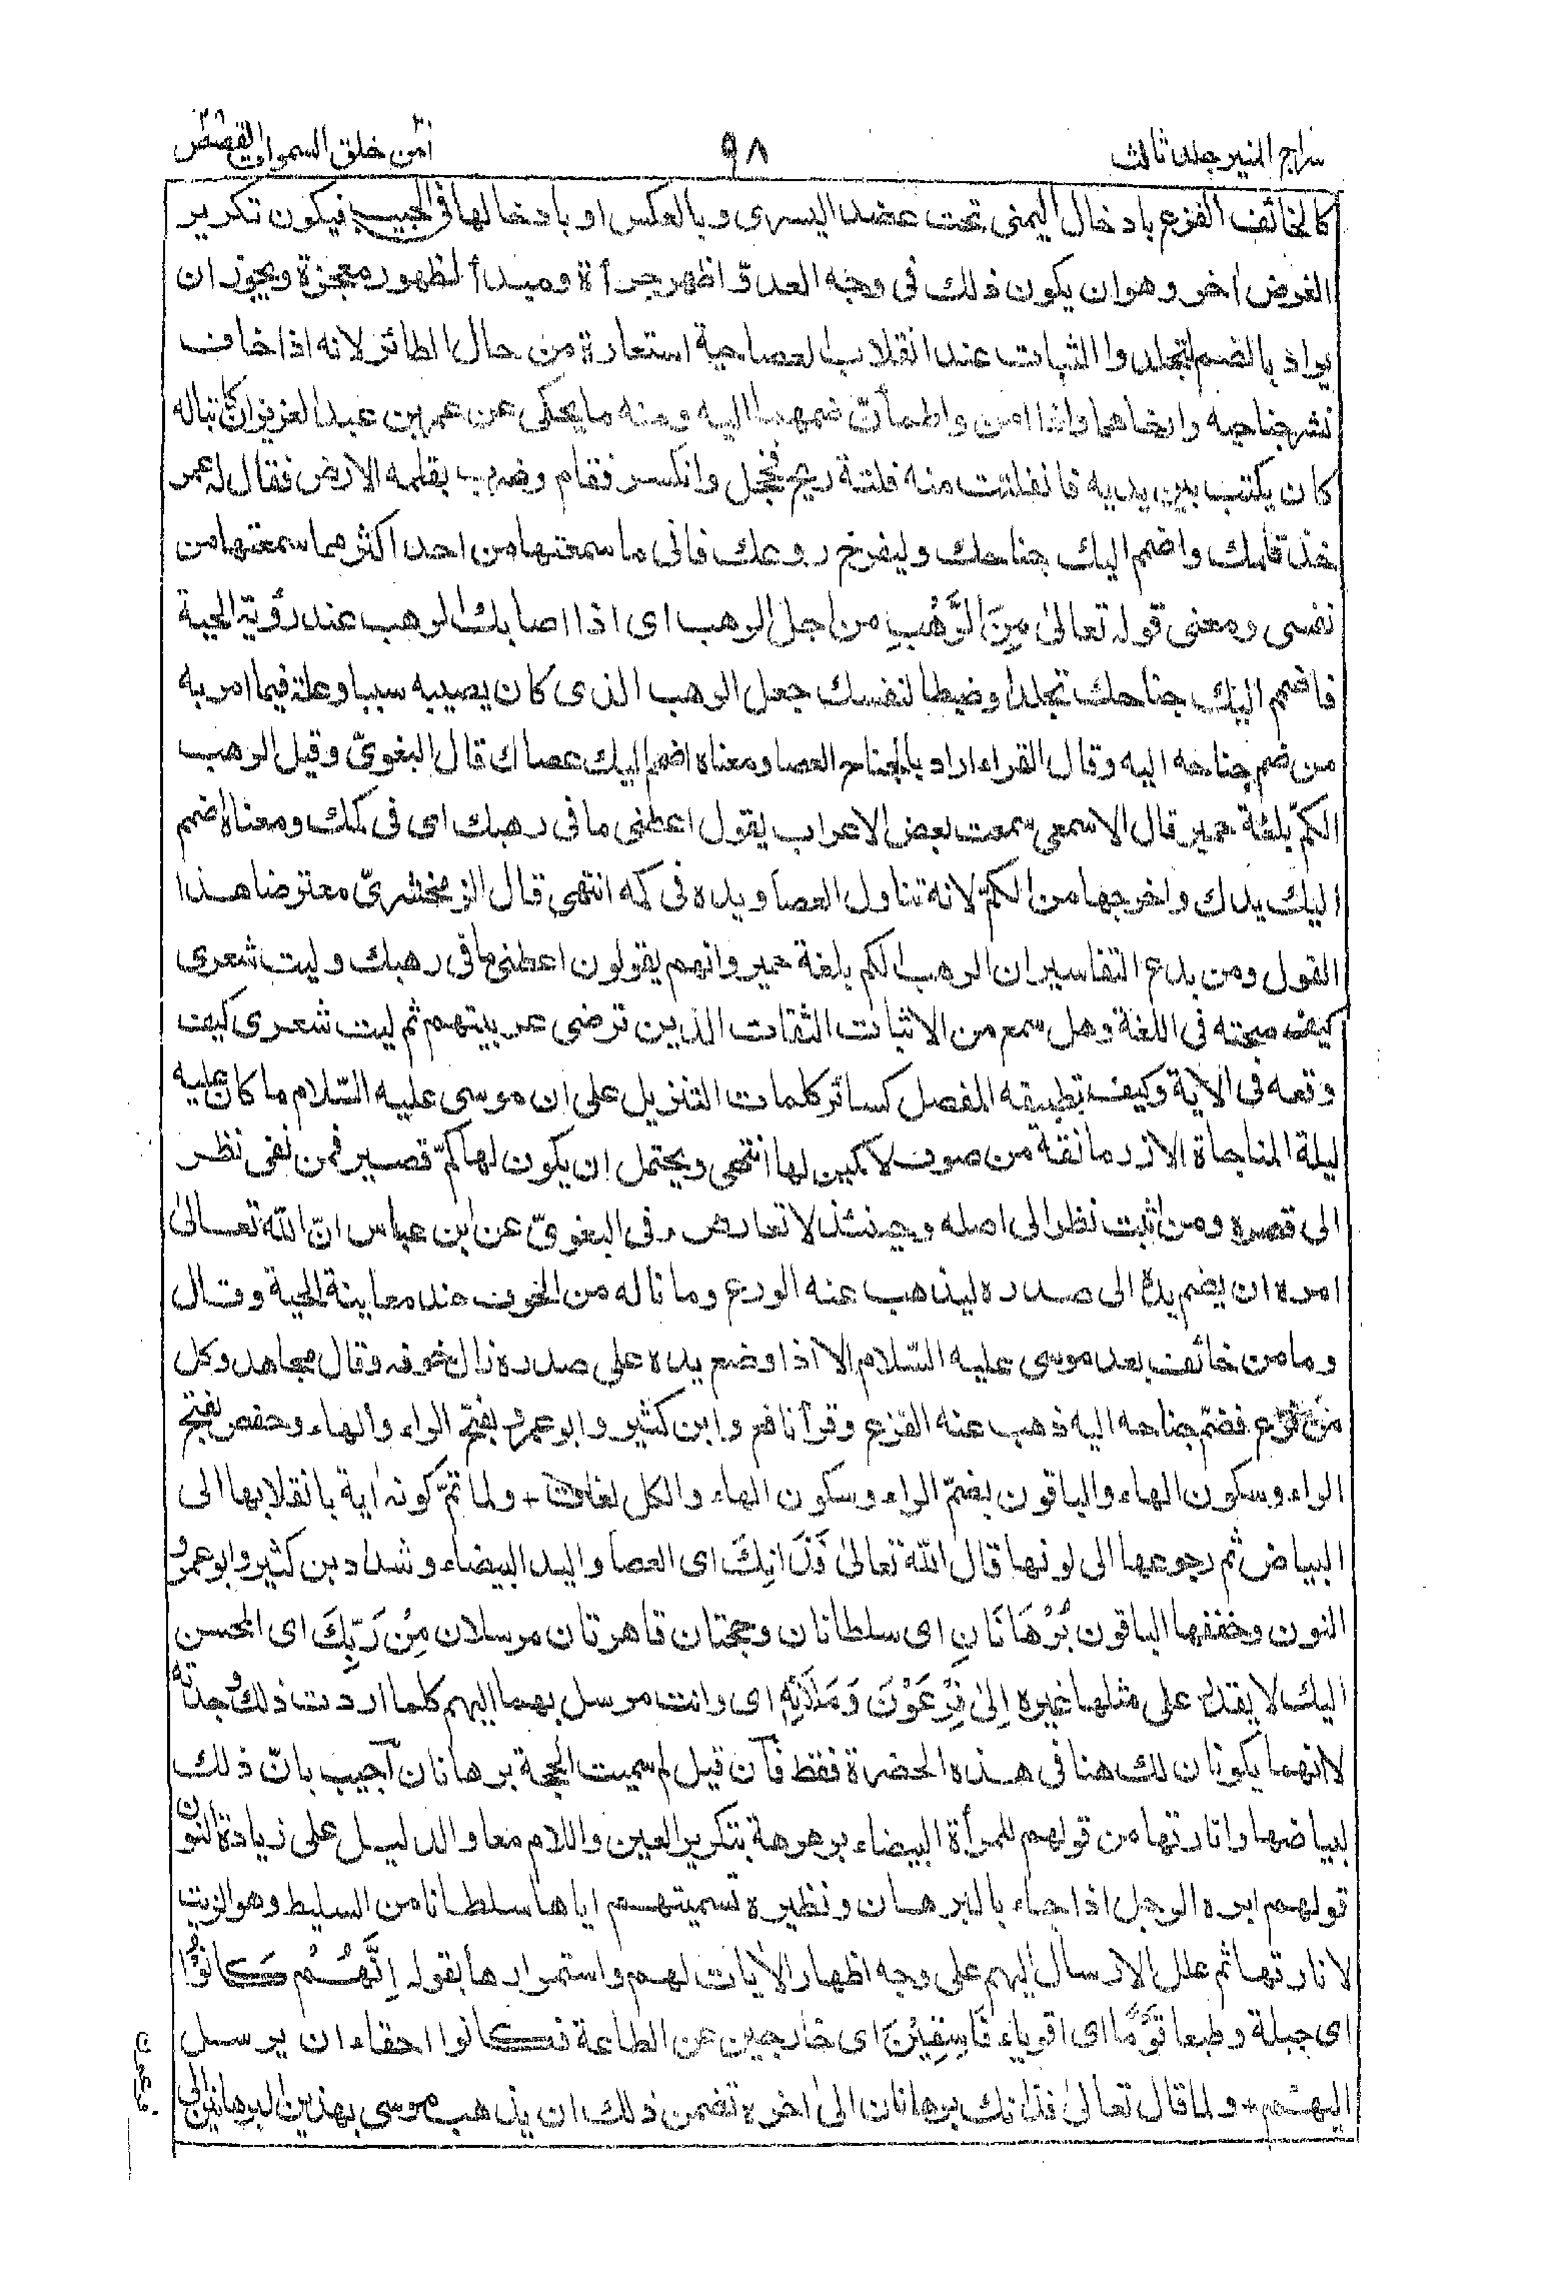 سراج المنير جلد ثالث
٩٨
امّن خلق السموات القصص ٢٨
كالخائف الفزع بادخال اليمنى تحت عضد اليسرى وبالعكس او بادخالها فى الجيب فيكون تكرير
الغرض اٰخر وهو ان يكون ذلك فى وجه العدوّ اظهر جرأة ومبدأ لظهور معجزة ويجوز ان
يراد بالضم التجلد والثبات عند انقلاب العصا حية استعارة من حال الطائر لانه اذا خاف
نشر جناحيه وارخاهما واذا امن واطمأنّ ضمهما اليه ومنه ما يحكى عن عمر بن عبد العزيز ان كاتبا له
كان يكتب بين يديه فانفلتت منه فلتة ريح فخجل وانكسر فقام وضرب بقلمه الارض فقال له عمر
خذ قلمك واضمم اليك جناحك وليفرخ روعك فانى ما سمعتها من احد اكثر مما سمعتها من
نفسى ومعنى قوله تعالىٰ مِنَ الرَّهْبِ من اجل الرهب اى اذا اصابك الرهب عند رؤية الحية
فاضمم اليك جناحك تجلدا وضبطا لنفسك جعل الرهب الذى كان يصيبه سببا وعلة فيما امر به
من ضم جناحه اليه وقال الفراء اراد بالجناح العصا ومعناه اضمم اليك عصاك قال البغوىّ وقيل الرهب
الكمّ بلغة حمير قال الاصمعى سمعت بعض الاعراب يقول اعطنى ما فى رهبك اى فى كمك ومعناه اضمم
اليك يدك واخرجها من الكمّ لانه تناول العصا ويده فى كمه انتهى قال الزمخشرىّ معترضا هذا
القول ومن بدع التفاسير ان الرهب الكم بلغة حمير وانهم يقولون اعطنى ما فى رهبك وليت شعرى
كيف صحته فى اللغة وهل سمع من الاثبات الثقات الذين ترضى عربيتهم ثم ليت شعرى كيف
وقعه فى الاٰية وكيف تطبيقه المفصل كسائر كلمات التنزيل على ان موسى عليه السّلام ما كان عليه
ليلة المناجاة الا زرمانقة من صوف لا كمين لها انتهى ويحتمل ان يكون لها كمّ قصير فمن نفى نظر
الى قصره ومن اثبت نظر الى اصله وحينئذ لا تعارض وفى البغوىّ عن ابن عباس انّ الله تعالىٰ
امره ان يضم يده الى صدره ليذهب عنه الورع وما ناله من الخوف عند معاينة الحية وقال
وما من خائف بعد موسى عليه السّلام الا اذا وضع يده على صدره زال خوفه وقال مجاهد وكل
من فزع فضمّ جناحه اليه ذهب عنه الفزع وقرأ نافع وابن كثير وابو عمرو بفتح الراء والهاء وحفص بفتح
الراء وسكون الهاء والباقون بضمّ الراء وسكون الهاء والكل لغات + ولما تمّ كونه اٰية بانقلابها الى
البياض ثم رجوعها الى لونها قال الله تعالىٰ فَذَانِكَ اى العصا واليد البيضاء وشدد بن كثير وابو عمرو
النون وخففها الباقون بُرْهَانَانِ اى سلطانان وحجتان قاهرتان مرسلان مِنْ رَبِّكَ اى المحسن
اليك لا يقدر على مثلها غيره اِلىٰ فِرْعَوْنَ وَمَلَائِهِ اى وانت مرسل بهما اليهم كلما اردت ذلك وجدته
لا انهما يكونان لك هنا فى هذه الحضرة فقط فاٰن قيل لم سميت الحجة برهانان اٰجيب بانّ ذلك
لبياضها وانارتها من قولهم للمرأة البيضاء برهرهة بتكرير العين واللام معا والدليل على زيادة النون
قولهم ابره الرجل اذا جاء بالبرهان ونظيره تسميتهم اياها سلطانا من السليط وهو الزيت
لانارتها ثم علل الارسال اليهم على وجه اظهار الاٰيات لهم واستمرارها بقوله اِنَّهُمْ كَانُوْا
اى جبلة وطبعا قَوْمًا اى اقوياء فَاسِقِيْنَ اى خارجين عن الطاعة فكانوا احقاء ان يرسل
اليهم + ولما قال تعالىٰ فذانك برهانان الىٰ اٰخره تضمن ذلك ان يذهب موسى بهذين البرهانين الى
فرعون